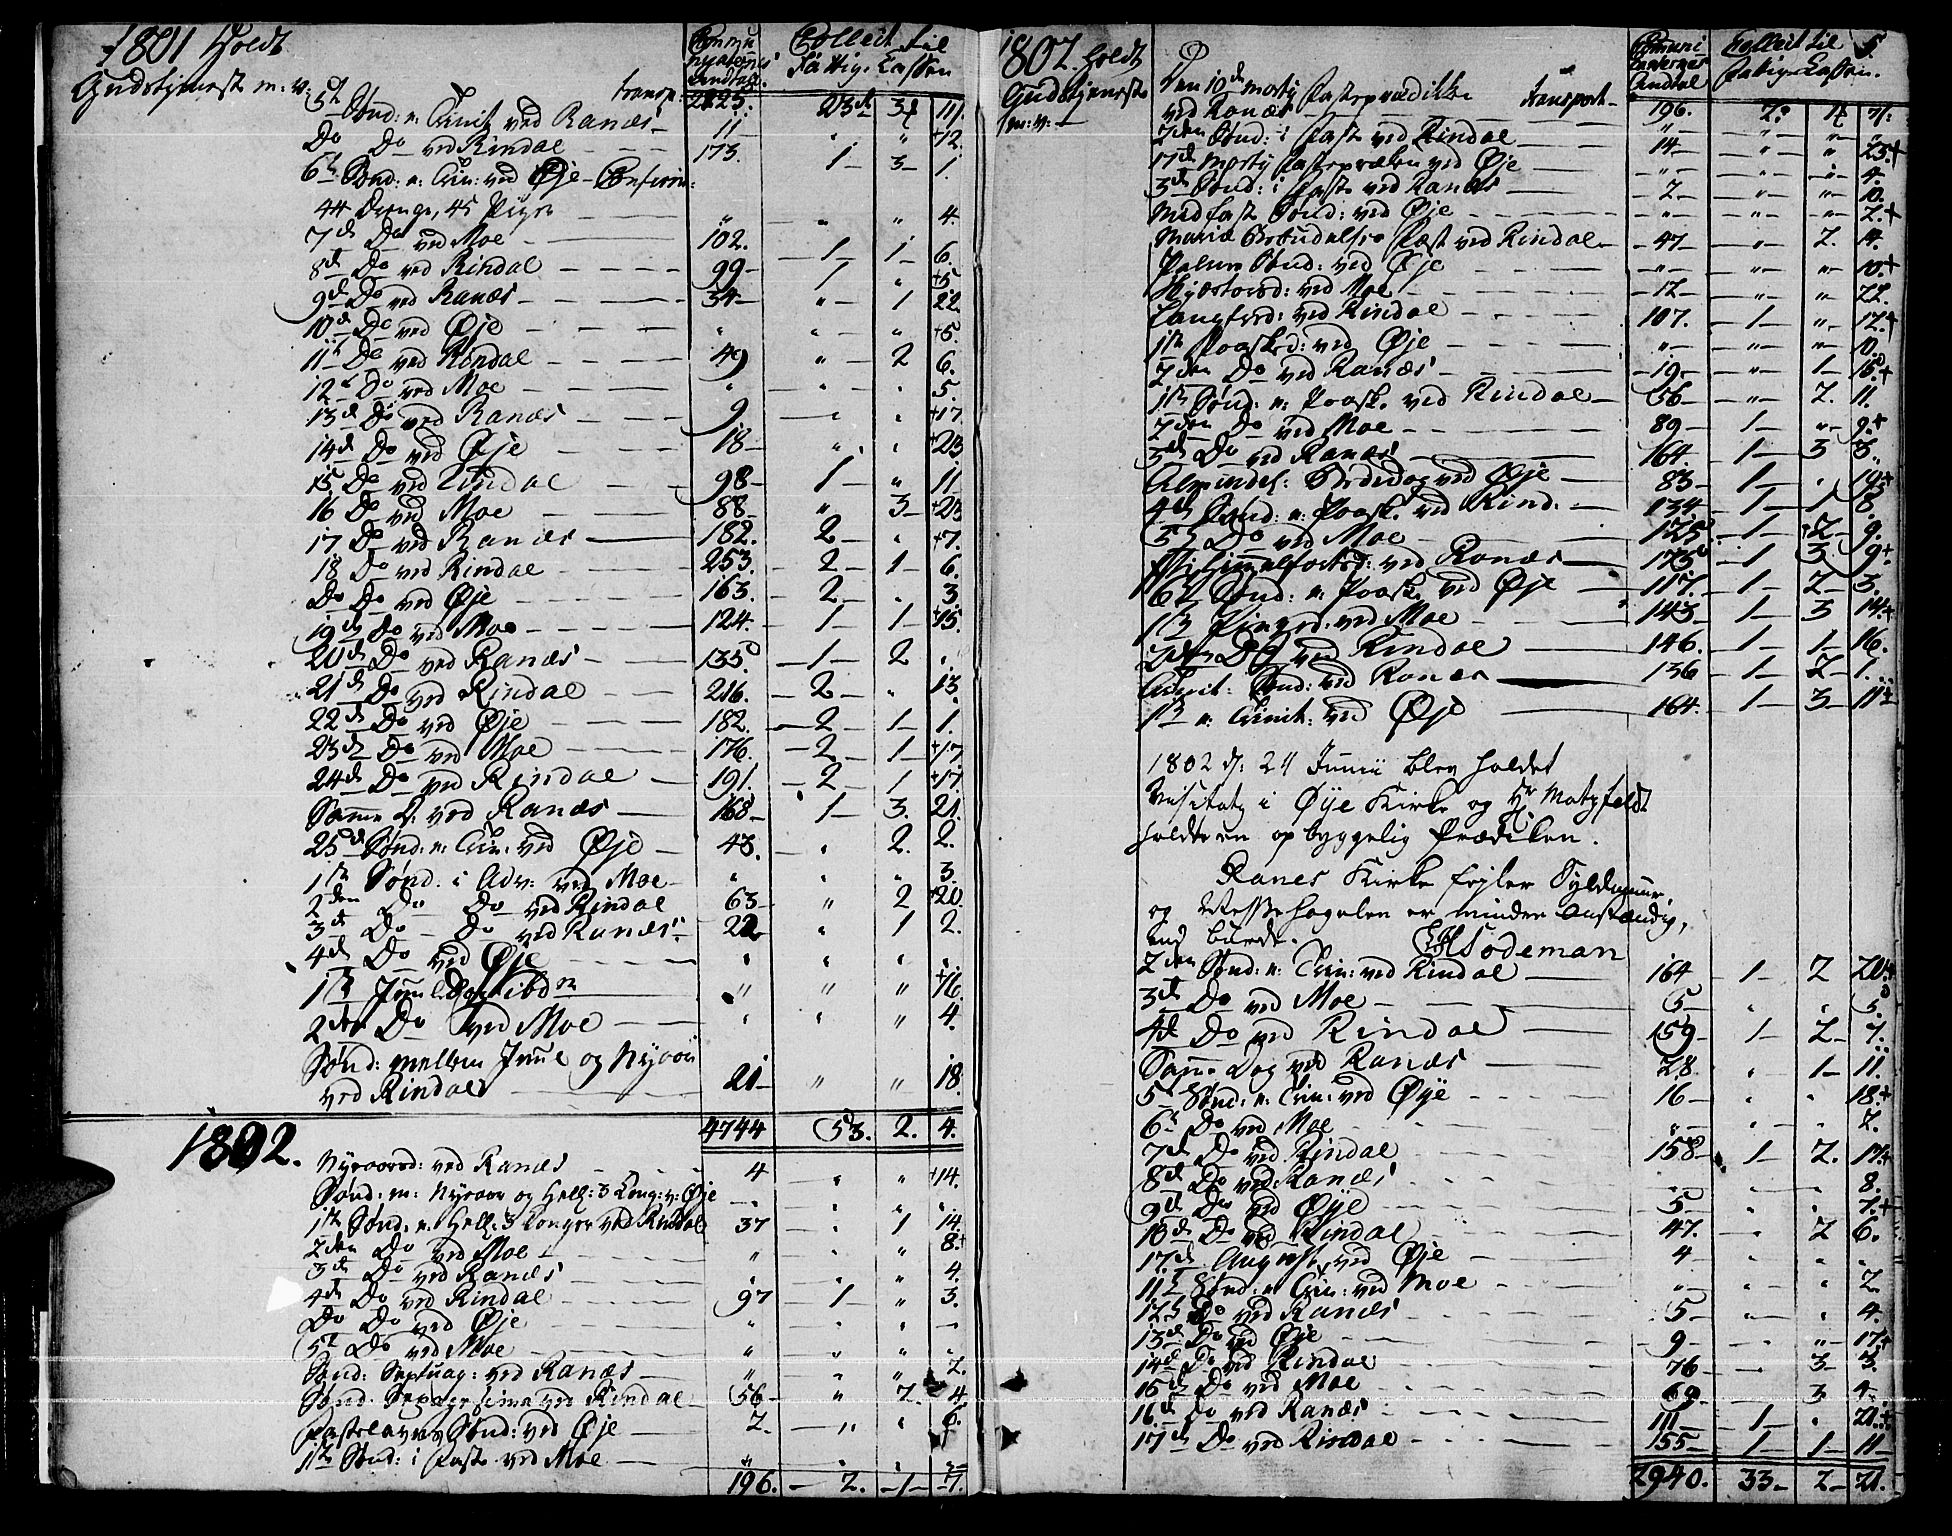 1801 Holdt
Gudstjenest m: v:
Communicanternes Andtal
Collect til Fattig Cassen
transp: 2225. 23 3 11.
5te Sønd: e: Trinit ved Ranæs
Do Do ved Rindal 11 " " +12
6te Sønd: e: Trin: ved Øje - Confirm: 173. 1 3 1
44 Drenge, 45 Piger
7de Do ved Moe " " " 4.
8de Do ved Rindal 102. 1 1 6.
9de Do ved Ranæs 99 1 " +5
10de Do ved Øje 34 " 1 22
11te Do ved Rindal 49 " 2 6.
12te Do ved Moe " " " 5.
13de Do ved Ranæs 9 " " +17
14de Do ved Øje 18 " " +23
15 Do ved Rindal 98 1 " 11
16 Do ved Moe 88 " 3 +23
17 Do ved Ranæs 182. 2 " +7.
18 Do ved Rindal 253. 2 1 6.
Do Do ved Øje 163. 2 " 3
19de Do ved Moe 124. 1 1 +15.
20de Do ved Ranæs 135 1 2 "
21de Do ved Rindal 216. 2 " 13
22de Do ved Øje 182. 2 1 1.
23de Do ved Moe 176. 2 1 +17
24de Do ved Rindal 191. 2 1 +17.
Samme D: ved Ranæs 168 1 3. 21.
25de Sønd: e: Trin: ved Øje 43. " 2. 2.
1ste Sønd: i Adv: ved Moe " " " 3
2den Do Do ved Rindal 63 " 2 +20.
3de Do Do ved Ranæs 22 " 1 2.
4de Do ved Øje " " "
1ste Juuledag " " " +16
2den Do ved Moe " " " 4.
Sønd: mellem Juul og Nyaar
ved Rindal 21 " " 18
4744 53. 2. 4.
1802.
Nyaarsd: ved Ranæs 4 " " +14.
Sønd: m: Nyaar og Hell: 3 Kong: v: Øje
1ste Sønd: e: Hell: 3 Konger ved Rindal 37 " 1 14.
2den Do ved Moe " " " 8.+
3de Do ved Ranæs " " " 4.
4de Do ved Rindal 97 1 " 3.
Do Do ved Øje
5te Do ved Moe
Sønd: Septuag: ved Ranæs " " " 2.
Sønd: Sexagesima ved Rindal 56 " 2. 4
Fastelavns Sønd: ved Øje 2. " "
1ste Sønd: i Faste ved Moe
196. 2. 1 7.
1802. Holdt
Gudstjeneste
m: v:
Communicanternes Andtal
Collect til Fattig Cassen.
5.
Den 10de Marty Fasteprædiken
ved Ranæs transport 196. 2. 1 7.
2den Sønd: i Faste ved Rindal
17de Marty Fastepræken ved Øje 14 " " 23.+
3de Sønd: i Faste ved Ranæs " " " 4.
Midfaste Sønd: ved Øje 2 " " 10.
Mariæ Bebudelses Fæst ved Rindal 47 " 2. 14.
Palme Sønd: ved Øje " " " 10.+
Skjærtorsd: ved Moe 12 " " 22.
Langfred: ved Rindal 107. 1 " 12.+
1ste Paaskd: ved Øje " " " 10.
2den Do ved Ranæs 19 " 1 15+
1ste Sønd: e: Paask. ved Rindal 56 " 2. 11.
2den Do ved Moe 89 1 " 9.+
3de Do ved Ranæs 164 1 3 3.
Almindel: Bededag ved Øje 83 1 " 19.+
4de Sønd: e: Paask. ved Rind. 134 1 1 8
5te Do ved Moe 125. 1 2 9.
Christi Himmelfartsd: ved Ranæs 175 1 3 9+
6te Sønd: e: Paask. ved Øje 117. 1 2 3.
1ste Pingsd: ved Moe 143 1 3 14.+
2den Do ved Rindal 146. 1 1 16.
Trinit: Sønd: ved Ranæs 136 1 2 1.
1ste e: Trinit: ved Øje 164. 1 3 11+
1802 d: 24 Junii blev holdet
Visitatz i Øye Kirke og Hr Matzfeldt
holdte en opbyggelig Prædiken.
Ranes Kirke fejler
og Messehagelen er mindre anstændig,
end burde.
Sodeman
2den Sønd: e: Trin: ved Rindal 164 1 2 20.+
3de Do ved Moe 5 " " 5.
4de Do ved Rindal 159 1 2 7.
Samme Dag ved Ranæs 28. " 1 11.
5te Sønd: e: Trin: ved Øye 16 " " 18.+
6te Do ved Moe " " " 2.
7de Do ved Rindal 158 1 2. 17+
8de Do ved Ranæs " " " 8.
9de Do ved Øye 5 " " 7.+
10de Do ved Rindal 47. " 2 6.
17de August ved Øje 4 " " "
11te Sønd: e: Trin: ved Moe " " " 2
12te Do ved Ranæs 5 " " 4.
13de Do ved Øje 9 " " 17+
14de Do ved Rindal 76 " 3 3.
15de Do ved Moe 69 " 3 4
16de Do ved Ranæs 111 1 " 21.+
17de Do ved Rindal 155 1 1 11
2940. 33 2 21.